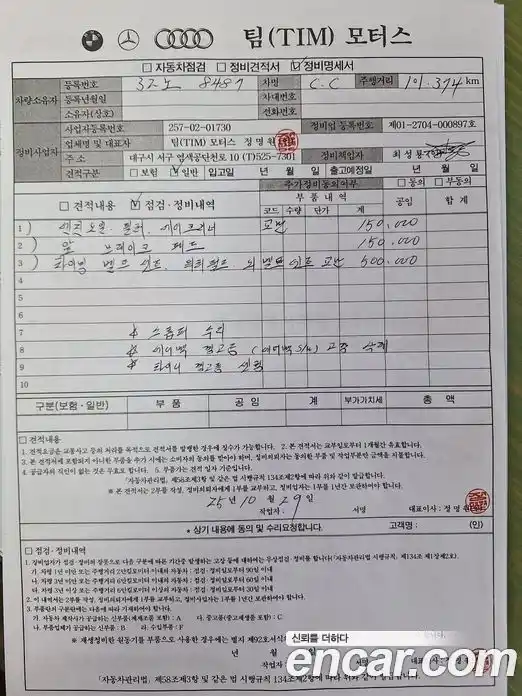 팀(TIM) 모터스
□ 자동차점검 □ 정비견적서 ☑ 정비명세서
차량소유자
등록번호 32노 8487 차명 C.C 주행거리 km
등록년월일 차대번호
소유자(상호) 전화번호
정비사업자
사업자등록번호 257-02-01730 정비업 등록번호 제01-2704-000897호
업체명 및 대표자 팀(TIM) 모터스 정명원
주 소 대구시 서구 염색공단천로 10 (T)525-7301 정비책임자 최성용
견적구분 □ 보험 ☑ 일반 입고일 년 월 일 출고예정일 년 월 일
추가정비동의여부 □ 동의 □ 부동의
□ 견적내용 ☑ 점검·정비내역 부품내역 공임 합계
코드 수량 단가 계
1 엔진오일. 필터. 에어크리너 교환 150.000
2 앞 브레이크 패드 150.000
3 타이밍 벨트 세트. 외 벨트 세트 교환 500.000
4
5
6
7 수리
8 에어백 경고등 (에어백 S/W) 고장 삭제
9 경고등
10
구분(보험·일반) 부품 공임 계 부가가치세 총액
□ 견적내용
1. 견적요금은 교통사고 등의 처리를 목적으로 견적서를 발행한 경우에 징수가 가능합니다. 2. 본 견적서는 교부일로부터 1개월간 유효합니다.
4. 공급자의 직인이 없는 것은 무효로 합니다. 5. 부품가는 견적 일자 기준입니다.
「자동차관리법」 제58조제3항 및 같은 법 시행규칙 134조제2항에 따라 위와 같이 발급합니다.
※ 본 견적서는 2부를 작성, 정비의뢰자에게 1부를 교부하고, 정비업자는 1부를 1년간 보관하여야 합니다.
25년 10월 29일
작업자: 서명 대표이사: 정명원
* 상기 내용에 동의 및 수리요청합니다. 고객명: (인)
□ 점검·정비내역
가. 차령 1년 미만 또는 주행거리 2만킬로미터 이내의 자동차: 점검·정비일로부터 90일 이내
나. 차령 3년 미만 또는 주행거리 6만킬로미터 이내의 자동차: 점검·정비일로부터 60일 이내
다. 차령 3년 이상 또는 주행거리 6만킬로미터 이상의 자동차: 점검·정비일로부터 30일 이내
2. 이 내역서는 2부를 작성, 정비의뢰자에게 1부를 교부하고, 정비사업자는 1부를 1년간 보관하여야 합니다.
3. 부품란의 구분란에는 다음에 따라 기재하여야 합니다.
가. 자동차 제작사가 공급하는 신부품(재제조품 포함): A 다. 중고품(중고재생품 포함): C
나. 부품업체가 공급하는 신부품: B 라. 수입부품: F
※ 재생정비한 원동기를 부품으로 사용한 경우에는 별지 제92호서식
년 월
작업자: 서명 대표이사: 정명원
「자동차관리법」 제58조제3항 및 같은 법 시행규칙 134조제2항에 따라 위와 같이 발급합니다.
신뢰를 더하다
encar.com